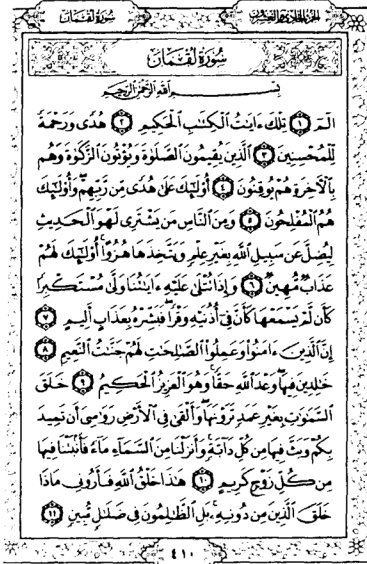 سُورَةُ لُقْمَان
الجزء الحادي والعشرون
سُورَةُ لُقْمَانَ
بِسْمِ اللَّهِ الرَّحْمَٰنِ الرَّحِيمِ
الٓمٓ ١ تِلْكَ ءَايَٰتُ الْكِتَٰبِ الْحَكِيمِ ٢ هُدًى وَرَحْمَةً
لِّلْمُحْسِنِينَ ٣ الَّذِينَ يُقِيمُونَ الصَّلَوٰةَ وَيُؤْتُونَ الزَّكَوٰةَ وَهُم
بِالْأَخِرَةِ هُمْ يُوقِنُونَ ٤ أُو۟لَٰٓئِكَ عَلَىٰ هُدًى مِّن رَّبِّهِمْ وَأُو۟لَٰٓئِكَ
هُمُ الْمُفْلِحُونَ ٥ وَمِنَ النَّاسِ مَن يَشْتَرِى لَهْوَ الْحَدِيثِ
لِيُضِلَّ عَن سَبِيلِ اللَّهِ بِغَيْرِ عِلْمٍ وَيَتَّخِذَهَا هُزُوًا أُو۟لَٰٓئِكَ لَهُمْ
عَذَابٌ مُّهِينٌ ٦ وَإِذَا تُتْلَىٰ عَلَيْهِ ءَايَٰتُنَا وَلَّىٰ مُسْتَكْبِرًا
كَأَن لَّمْ يَسْمَعْهَا كَأَنَّ فِىٓ أُذُنَيْهِ وَقْرًا فَبَشِّرْهُ بِعَذَابٍ أَلِيمٍ ٧
إِنَّ الَّذِينَ ءَامَنُوا۟ وَعَمِلُوا۟ الصَّٰلِحَٰتِ لَهُمْ جَنَّٰتُ النَّعِيمِ ٨
خَٰلِدِينَ فِيهَا وَعْدَ اللَّهِ حَقًّا وَهُوَ الْعَزِيزُ الْحَكِيمُ ٩ خَلَقَ
السَّمَٰوَٰتِ بِغَيْرِ عَمَدٍ تَرَوْنَهَا وَأَلْقَىٰ فِى الْأَرْضِ رَوَٰسِىَ أَن تَمِيدَ
بِكُمْ وَبَثَّ فِيهَا مِن كُلِّ دَآبَّةٍ وَأَنزَلْنَا مِنَ السَّمَآءِ مَآءً فَأَنۢبَتْنَا فِيهَا
مِن كُلِّ زَوْجٍ كَرِيمٍ ١٠ هَٰذَا خَلْقُ اللَّهِ فَأَرُونِى مَاذَا
خَلَقَ الَّذِينَ مِن دُونِهِۦ بَلِ الظَّٰلِمُونَ فِى ضَلَٰلٍ مُّبِينٍ ١١
٤١٠